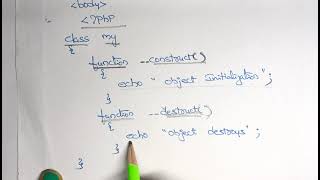 <body>
<?php
class my
{
function __construct()
{
echo "object Initialization";
}
function __destruct()
{
echo "object destroys";
}
}